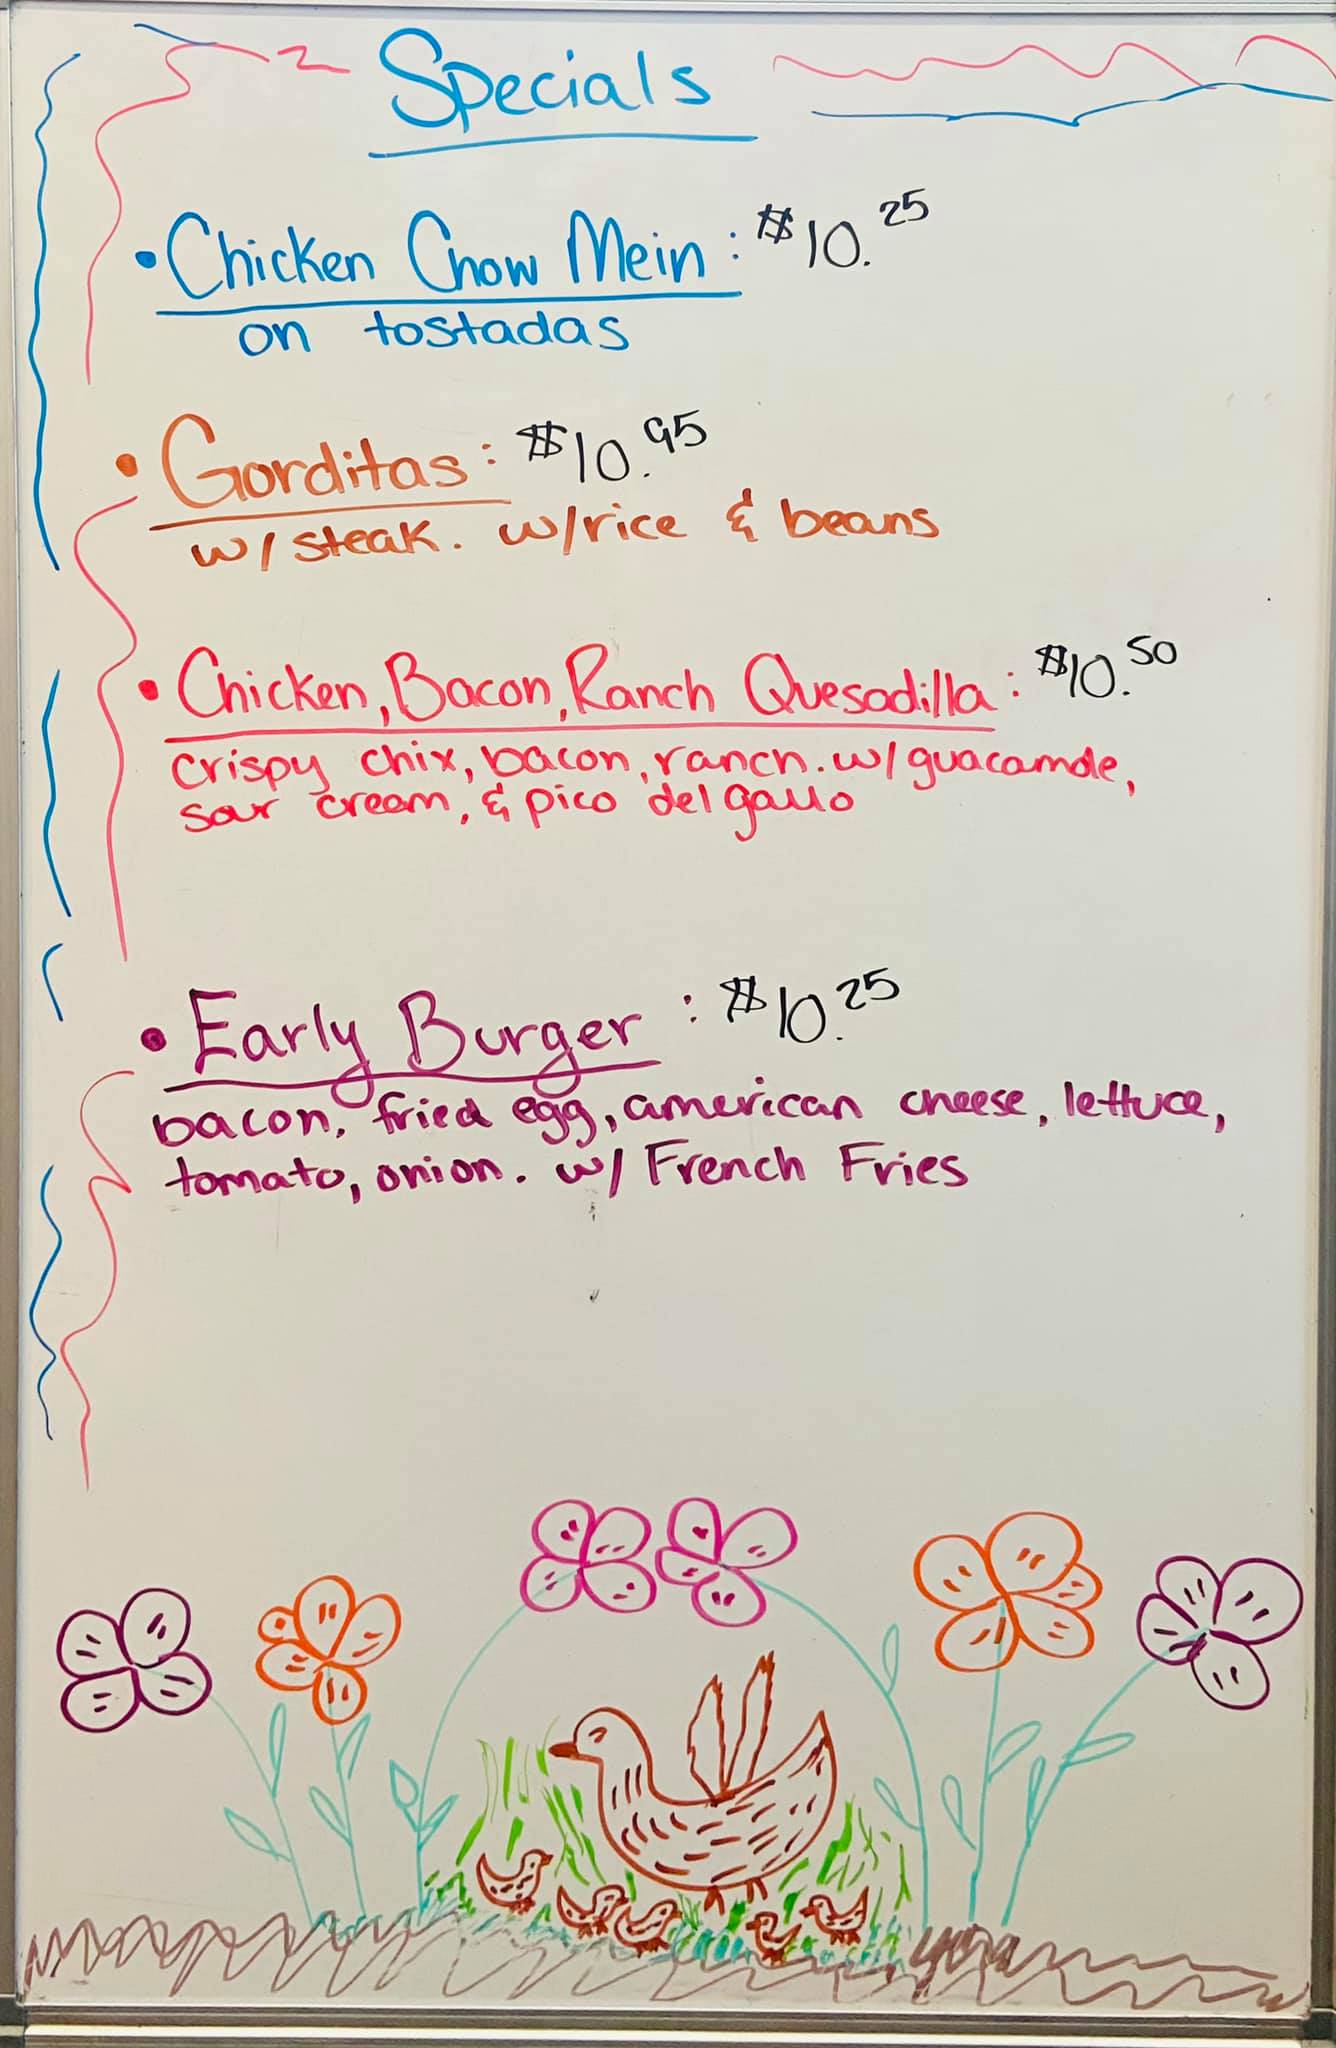 Specials
• Chicken Chow Mein: $10.25
on tostadas
• Gorditas: $10.95
w/ steak. w/rice & beans
• Chicken, Bacon, Ranch Quesadilla: $10.50
crispy chix, bacon, ranch. w/ guacamole,
sour cream, & pico del gallo
• Early Burger: $10.25
bacon, fried egg, american cheese, lettuce,
tomato, onion. w/ French Fries